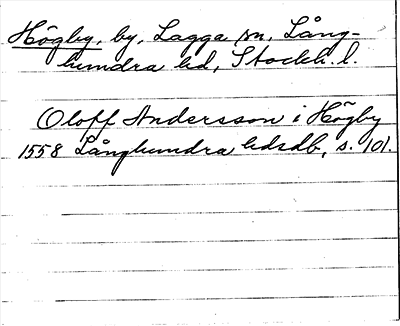 Högby, by, Lagga sn, Lång-
hundra hd, Stockh. l.
Oloff Andersson i Högby
1558 Långhundra hdsdb, s. 101.